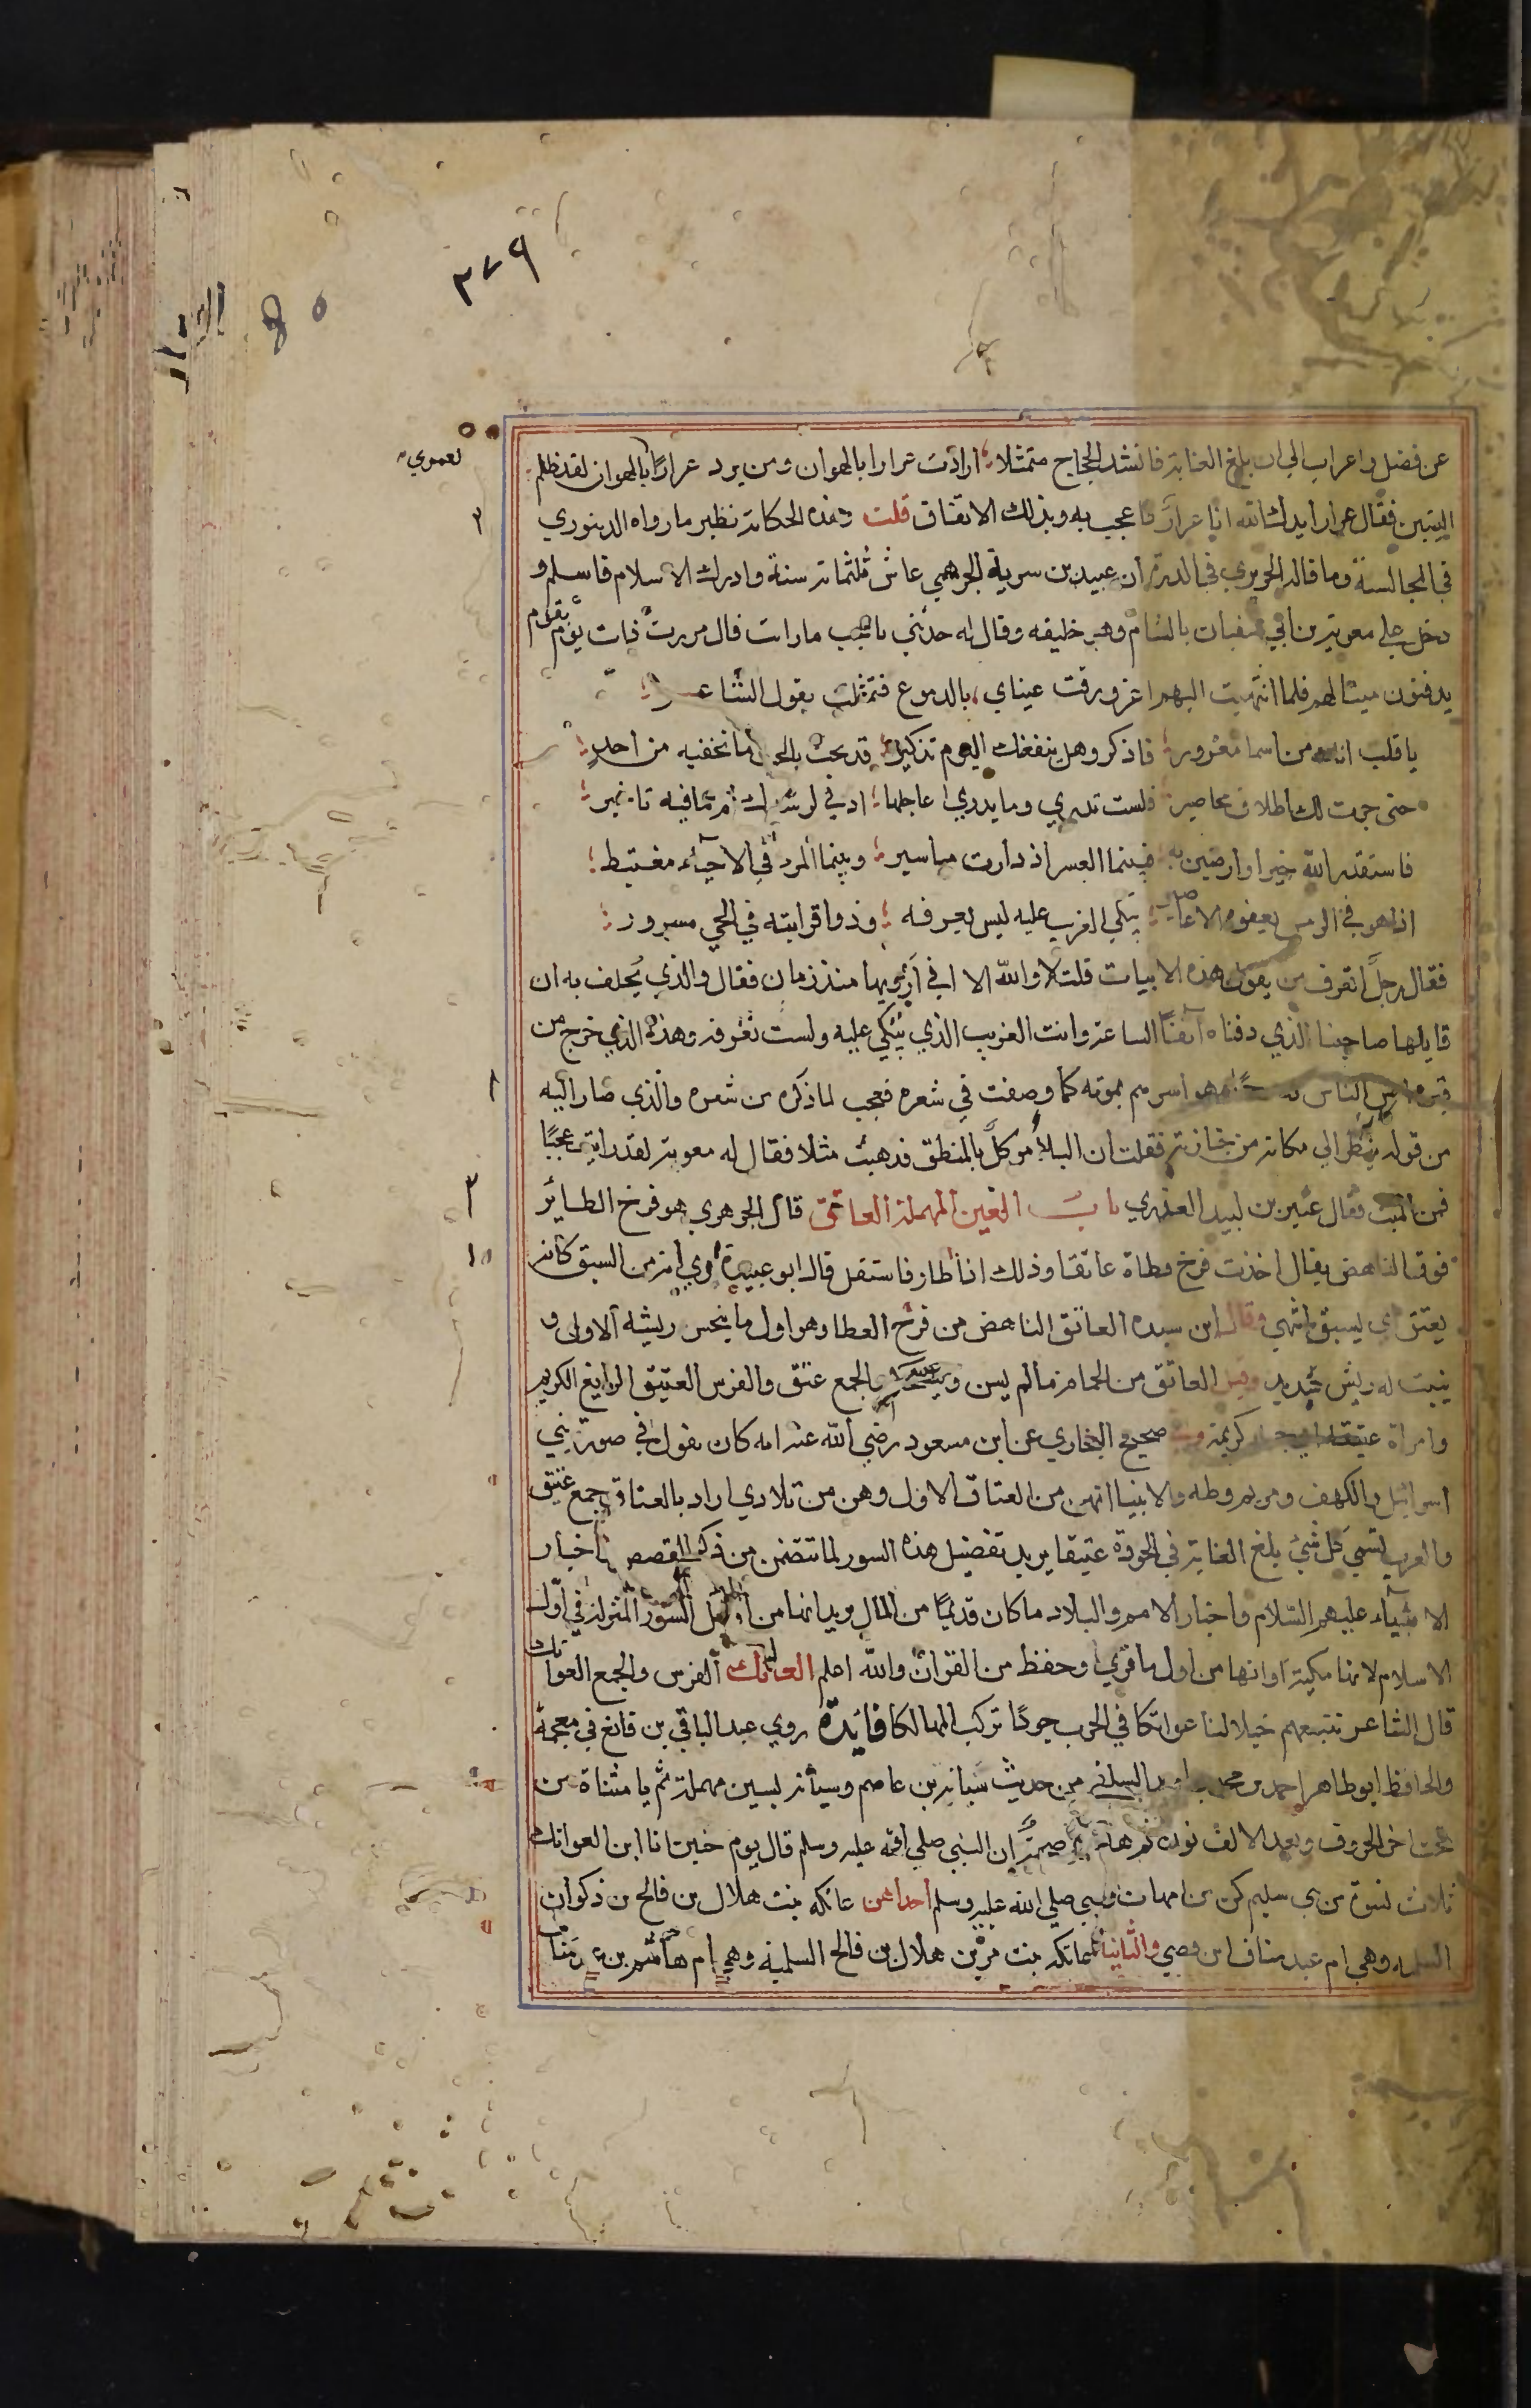 ٣٧٩
لعموي
عن فضل واعراب الى ان بلغ الغاية فانشد الحجاج متمثلا ارادت عرارا بالهوان ومن يرد عرارا بالهوان لقد ظلم
البيتين فقال عرار ايدك الله انا عرار فاعجب به وبذلك الاتفاق قلت وهذه الحكاية نظير ما رواه الدينوري
في المجالسة وما قاله الحريري في الدرة ان عبيد بن سرية الجرهمي عاش ثلثماية سنة وادرك الاسلام فاسلم و
دخل على معوية بن ابي سفيان بالشام وهو خليفه وقال له حدثني باعجب ما رايت قال مررت ذات يوم بقوم
يدفنون ميتا لهم فلما انتهيت اليهم اغرورقت عيناي بالدموع فتمثلت بقول الشاعر
يا قلب انك من اسما مغرور فاذكر وهل ينفعك اليوم تذكير قد بحت بالحب ما تخفيه من احد
حتى جرت لك اطلاق محاصير فلست تدري وما يدري اعاجلها ادنى لرشدك ام ما فيه تاخير
فاستقدر الله خيرا وارضين به فبينما العسر اذ دارت مياسير وبينما المرء في الاحياء مغتبط
اذا هو في الرمس يعفوه الاعاصير يبكي الغريب عليه ليس يعرفه وذوا قرابته في الحي مسرور
فقال رجل اتعرف من يقول هذه الابيات قلت لا والله الا اني ارويها منذ زمان فقال والذي يحلف به ان
قايلها صاحبنا الذي دفناه آنفا الساعة وانت الغريب الذي يبكي عليه ولست تعرفه وهذا الذي خرج من
قبره امس الناس به وهو اسرهم بموته كما وصفت في شعره فعجب لما ذكره من شعره والذي صار اليه
من قوله ينظر الى مكانه من جنازته فقلت ان البلاء موكل بالمنطق فذهبت مثلا فقال له معوية لقد رايت عجبا
فمن الميت فقال عثير بن لبيد العذري باب العين المهملة العاتق قال الجوهري هو فرخ الطاير
فوق الناهض يقال اخذت فرخ قطاة عاتقا وذلك اذا طار فاستقل قال ابو عبيدة نري انه من السبق كانه
يعتق اي يسبق انتهى وقال ابن سيده العاتق الناهض من فرخ القطا وهو اول ما ينحسر ريشه الاول و
ينبت له ريش جديد وقيل العاتق من الحمام ما لم يسن ويستحكم والجمع عتق والفرس العتيق الرايع الكريم
وامراة عتيقة اي جميلة كريمة وفي صحيح البخاري عن ابن مسعود رضي الله عنه انه كان يقول في سورة بني
اسرائيل والكهف ومريم وطه والانبيا انهن من العتاق الاول وهن من تلادي اراد بالعتاق جمع عتيق
والعرب تسمي كل شيء بلغ الغاية في الجودة عتيقا يريد تفضيل هذه السور لما تتضمن من ذكر القصص باخبار
الانبياء عليهم السلام واخبار الامم والبلاد ما كان قديما من المال يريد انها من اوايل السور المنزلة في اول
الاسلام لانها مكية وانها من اول ما قرئ وحفظ من القران والله اعلم العاتك الفرس والجمع العواتك
قال الشاعر نتبعهم خيلا لنا عواتكا في الحرب جردا تركب المهالكا فايدة روي عبد الباقي بن قانع في معجمه
والحافظ ابو طاهر احمد بن محمد بن احمد السلفي من حديث سيابة بن عاصم وسيابة بسين مهملة ثم يا مثناة من
تحت اخر الحروف وبعد الالف نون ثم هاء ان النبي صلى الله عليه وسلم قال يوم حنين انا ابن العواتك
ثلاث نسوة من بني سليم كن من امهات النبي صلى الله عليه وسلم احداهن عاتكه بنت هلال بن فالج بن ذكوان
السلميه وهي ام عبد مناف ابن قصي والثانية عاتكه بنت مرة بن هلال بن فالج السلميه وهي ام هاشم بن عبد مناف